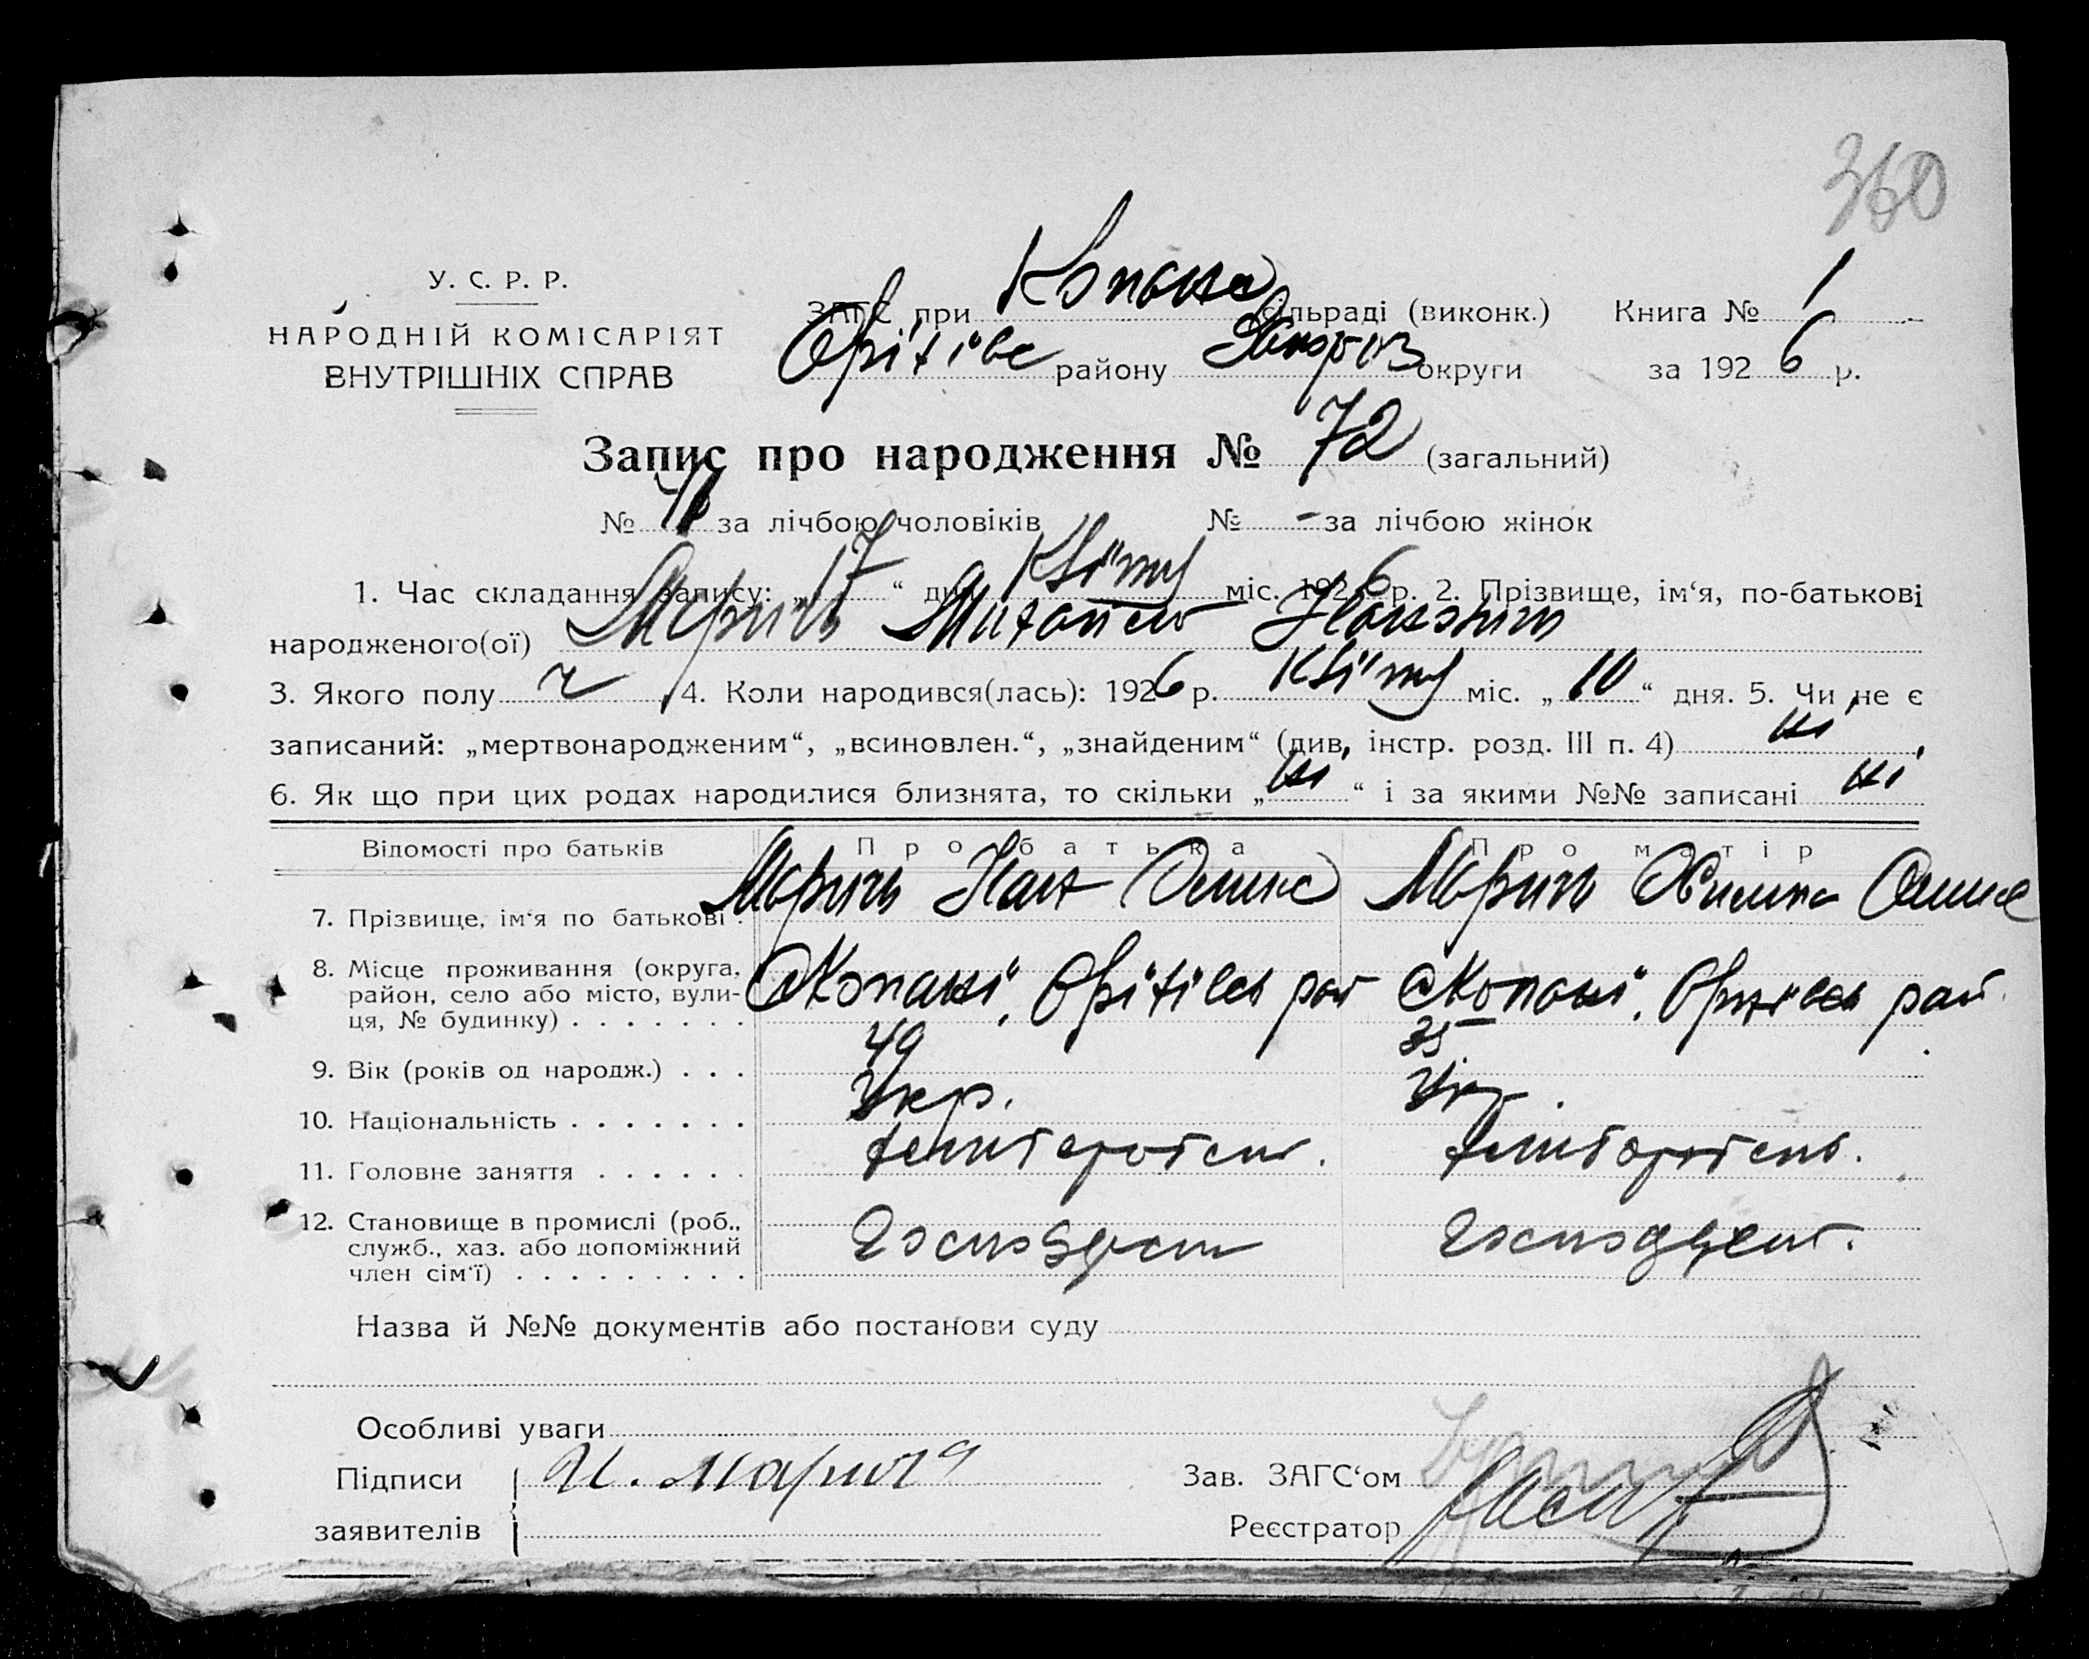 360
У. С. Р. Р.
НАРОДНІЙ КОМІСАРІЯТ
ВНУТРІШНІХ СПРАВ
ЗАГС при Копане сільраді (виконк.) Книга № 1
Оріхіве району Запоріз округи за 1926 р.
Запис про народження № 72 (загальний)
№ за лічбою чоловіків № - за лічбою жінок
1. Час складання запису: „17“ дня Квітня міс. 1926 р. 2. Прізвище, ім‘я, по-батькові
народженого(ої) Марич Михайло
3. Якого полу ч 4. Коли народився(лась): 1926 р. Квітня міс. „10“ дня. 5. Чи не є
записаний: „мертвонародженим“, „всиновлен.“, „знайденим“ (див, інстр. розд. III п. 4) ні
6. Як що при цих родах народилися близнята, то скільки „ні“ і за якими №№ записані ні
Відомості про батьків Про батька Про матір
7. Прізвище, ім‘я по батькові . Марич Марич
8. Місце проживання (округа, район, село або місто, вулиця, № будинку) . . . . . . . с Копані, Оріхівсь рай с Копані, рай.
9. Вік (років од народж.) . . . 49 35
10. Національність . . . . . . . Укр. Укр.
11. Головне заняття . . . . . . хліборобст. хліборобст.
12. Становище в промислі (роб., служб., хаз. або допоміжний член сім‘ї) . . . . . . . . .
Назва й №№ документів або постанови суду
Особливі уваги
Підписи
заявителів
Зав. ЗАГС‘ом
Реєстратор